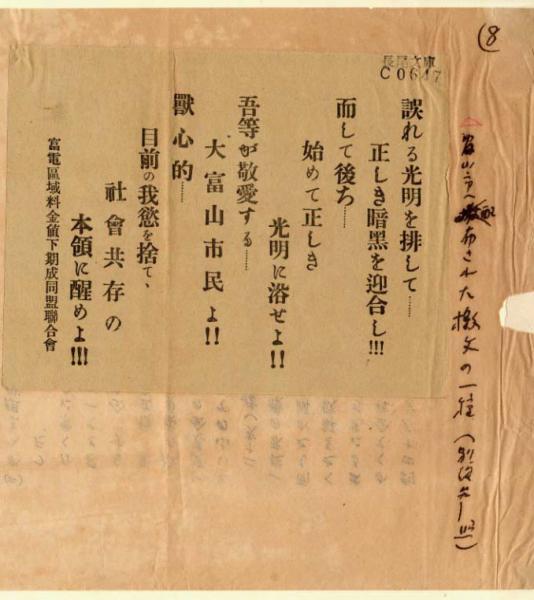 (8
長尾文庫
C0647
富山市へ配布された檄文の一種
誤れる光明を排して……
正しき暗黑を迎合し!!!
而して後ち……
始めて正しき
光明に浴せよ!!
吾等が敬愛する……
大富山市民よ!!
獸心的……
目前の我慾を捨て、
社會共存の
本領に醒めよ!!!
富電區域料金値下期成同盟聯合會